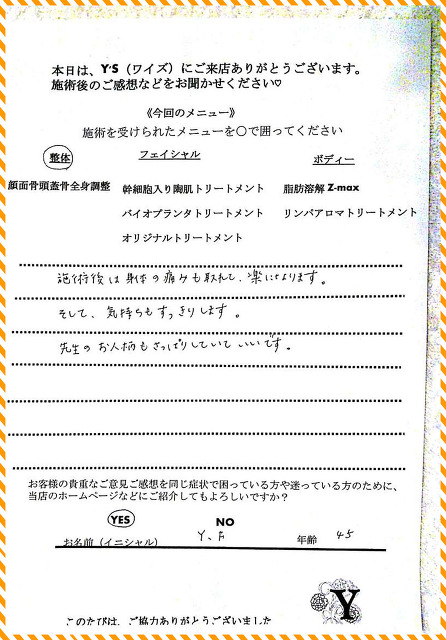 本日は、Y・S（ワイズ）にご来店ありがとうございます。
施術後のご感想などをお聞かせください♡
《今回のメニュー》
施術を受けられたメニューを〇で囲ってください
整体 フェイシャル ボディー
顔面骨頭蓋骨全身調整 幹細胞入り陶肌トリートメント 脂肪溶解 Z-max
バイオプランタトリートメント リンパアロマトリートメント
オリジナルトリートメント
施術後は身体の痛みも取れて、楽になります。
そして、気持ちもすっきりします。
先生のお人柄もさっぱりしていていいです。
お客様の貴重なご意見ご感想を同じ症状で困っている方や迷っている方のために、
当店のホームページなどにご紹介してもよろしいですか？
YES NO
お名前（イニシャル） Y、F 年齢 45
Y
このたびは、ご協力ありがとうございました